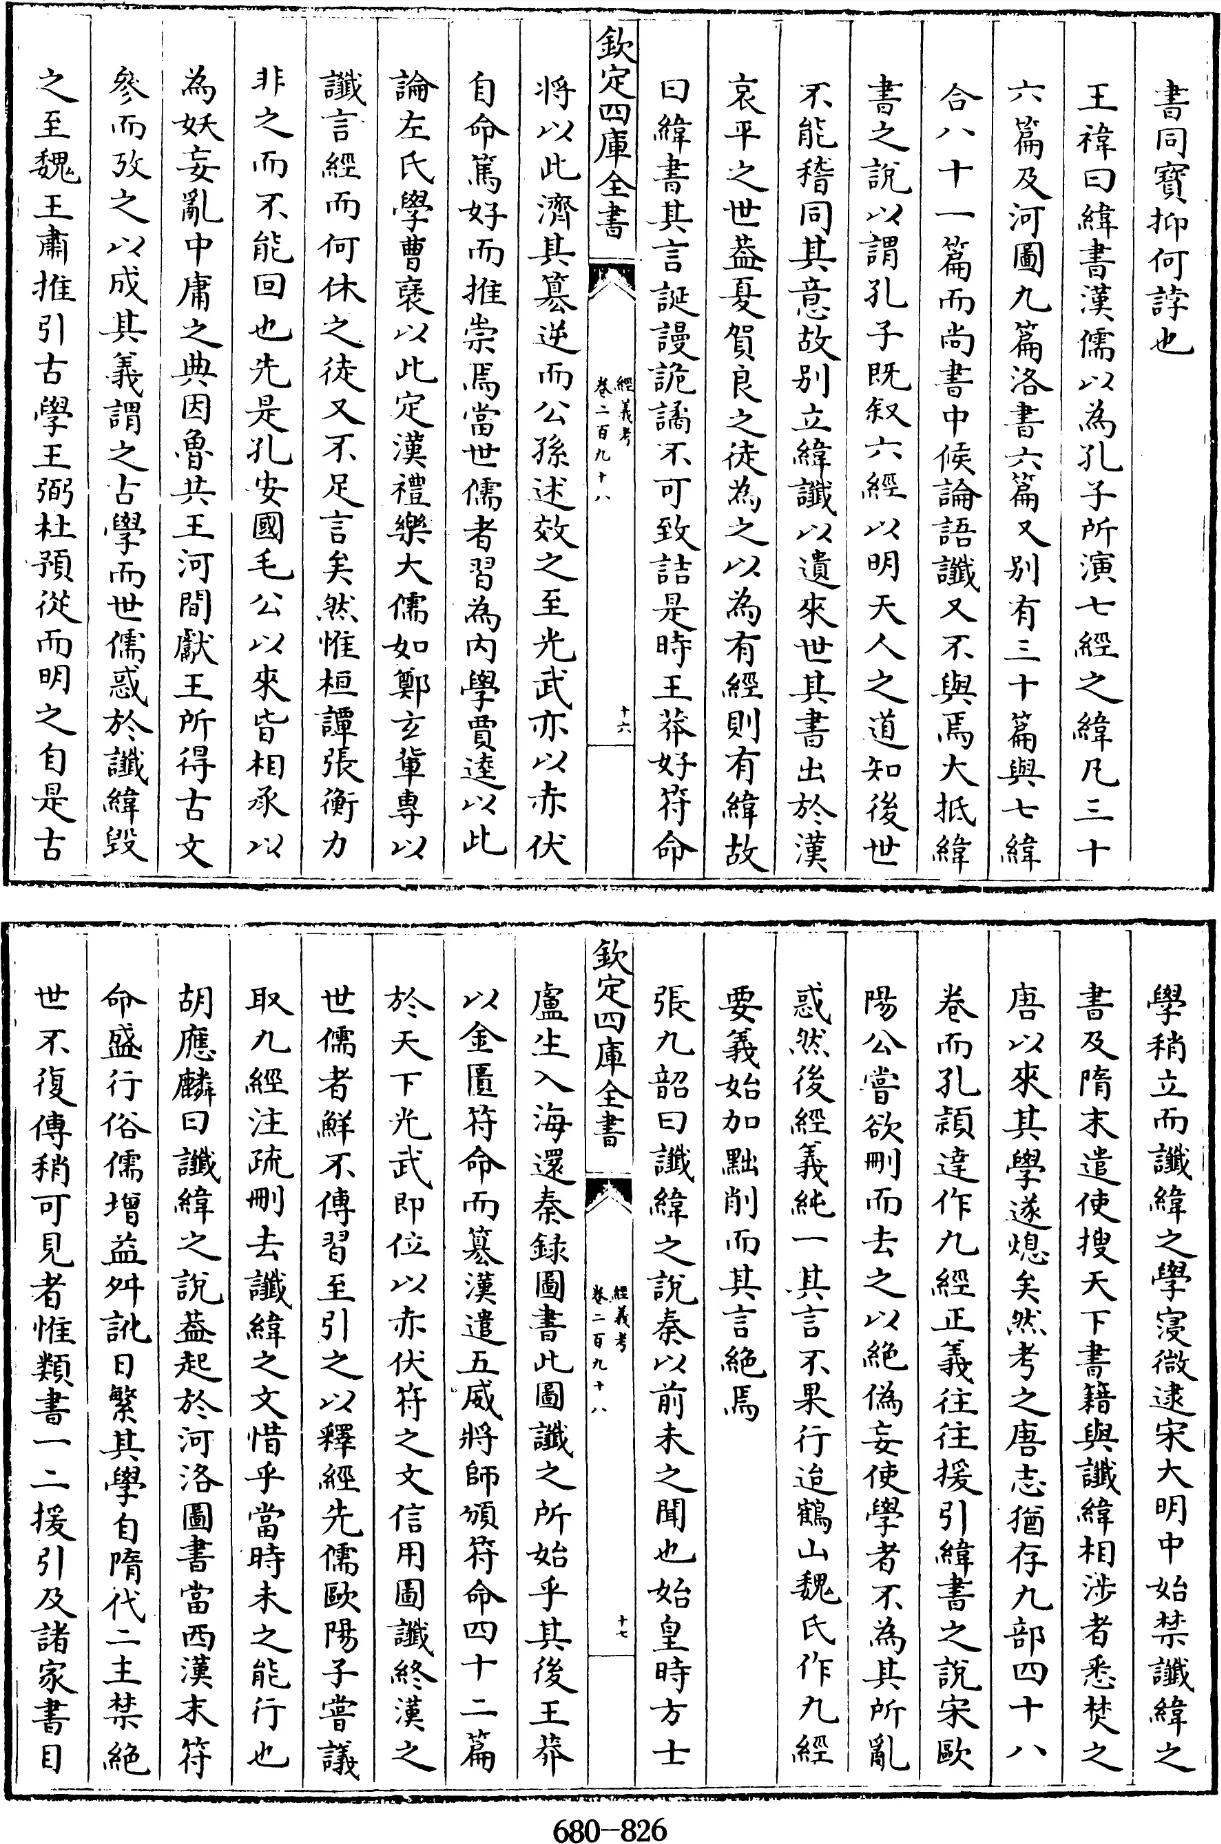 書同寶抑何誖也
王褘曰緯書漢儒以為孔子所演七經之緯凡三十
六篇及河圖九篇洛書六篇又别有三十篇與七緯
合八十一篇而尚書中候論語讖又不與焉大抵緯
書之說以謂孔子既叙六經以明天人之道知後世
不能稽同其意故别立緯讖以遺來世其書出於漢
哀平之世葢夏賀良之徒為之以為有經則有緯故
曰緯書其言誕謾詭譎不可致詰是時王莽好符命
欽定四庫全書
經義考
卷二百九十八
十六
將以此濟其簒逆而公孫述效之至光武亦以赤伏
自命篤好而推崇焉當世儒者習為内學賈逵以此
論左氏學曹襃以此定漢禮樂大儒如鄭玄軰專以
讖言經而何休之徒又不足言矣然惟桓譚張衡力
非之而不能回也先是孔安國毛公以來皆相承以
為妖妄亂中庸之典因魯共王河間獻王所得古文
參而攷之以成其義謂之古學而世儒惑於讖緯毁
之至魏王肅推引古學王弼杜預從而明之自是古
學稍立而讖緯之學寖微逮宋大明中始禁讖緯之
書及隋末遣使搜天下書籍與讖緯相涉者悉焚之
唐以來其學遂熄矣然考之唐志猶存九部四十八
卷而孔頴達作九經正義往往援引緯書之說宋歐
陽公嘗欲刪而去之以絶偽妄使學者不為其所亂
惑然後經義純一其言不果行迨鶴山魏氏作九經
要義始加黜削而其言絶焉
張九韶曰讖緯之說秦以前未之聞也始皇時方士
欽定四庫全書
經義考
卷二百九十八
十七
盧生入海還秦録圖書此圖讖之所始乎其後王莽
以金匱符命而簒漢遣五威將師頒符命四十二篇
於天下光武即位以赤伏符之文信用圖讖終漢之
世儒者鮮不傳習至引之以釋經先儒歐陽子嘗議
取九經注疏刪去讖緯之文惜乎當時未之能行也
胡應麟曰讖緯之說葢起於河洛圖書當西漢末符
命盛行俗儒增益舛訛日繁其學自隋代二主禁絶
世不復傳稍可見者惟類書一二援引及諸家書目
680-826